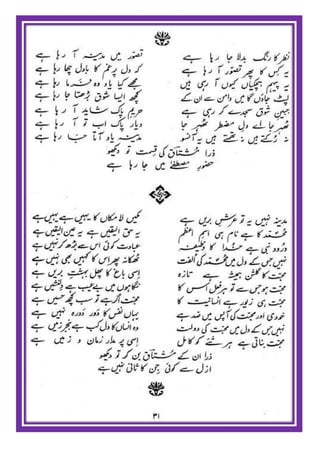 نظر کا رنگ بدلا جا رہا ہے تصور میں مدینہ آ رہا ہے
یہ کس کا پھر تصور آ رہا ہے کہ دل پر غم کا بادل چھا رہا ہے
یہ پیہم ہچکیاں کیوں آ رہی ہیں مجھے کیا یاد وہ فرما رہا ہے
لپٹ جاؤں گا میں دامن سے ان کے کچھ ایسا شوق بڑھتا جا رہا ہے
جبینِ شوق سجدے کر رہی ہے حریمِ پاک شاید آ رہا ہے
ٹھہر جا اے دلِ مضطر ٹھہر جا دیارِ پاک اب تو آ رہا ہے
نہ رکتے ہیں نہ تھمتے ہیں یہ آنسو مدینہ یاد آتا جا رہا ہے
ذرا مشتاق کی قسمت تو دیکھو
حضورِ مصطفےٰ میں جا رہا ہے
مدینہ نہیں یہ تو عرشِ بریں ہے مکیں لا مکاں کا یہیں ہے یہیں ہے
محمد کا ہے نام ہی اسمِ اعظم یہ حق الیقیں ہے یہ عین الیقیں ہے
درودِ نبی ہے خدا کا وظیفہ عبادت کوئی اس سے بڑھ کر نہیں ہے
نہیں جس کے دل میں محمد کی الفت ٹھکانہ پھر اس کا کہیں بھی نہیں ہے
محبت کا گلشن ہمیشہ ہے تازہ اسی باغ کا پھل بہشتِ بریں ہے
محبت ہو جس سے تو ہر فعل اس کا نگاہوں میں بے عیب ہے دلنشیں ہے
محبت ہی زیور ہے انسانیت کا محبت اگر ہے تو سب کچھ حسیں ہے
خودی اور محبت کی آپس میں ضد ہے یہاں نفس کا دَور دَورہ نہیں ہے
نہیں جس کے دل میں محبت کی دولت وہ انساں کا دل کب ہے بنجر زمیں ہے
محبت بناتی ہے ہر شئے کو کامل اسی پر مدارِ زمان و زمیں ہے
ذرا ان کے مشتاق بن کر تو دیکھو
ازل سے کوئی جن کا ثانی نہیں ہے
۳۱